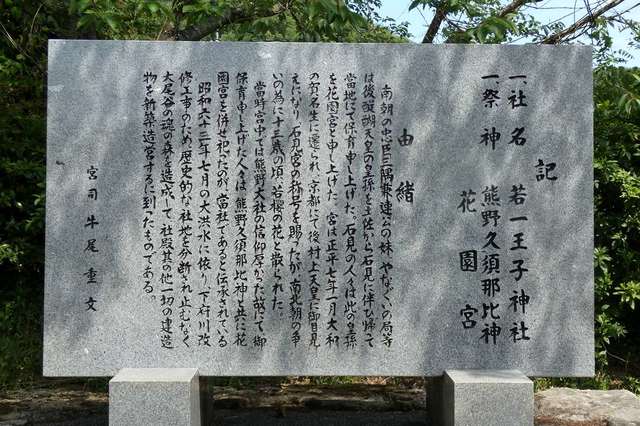 記
一、社名 若一王子神社
一、祭神 熊野久須那比神
花園宮
由緒
南朝の忠臣三隅兼連公の妹 やなぐいの局等
は後醍醐天皇の皇孫を土佐から石見に伴ひ帰って
當地にて保育申し上げた。石見の人々は此の皇孫
を花園宮と申し上げた。宮は正平七年一月大和
の賀名生に還られ、京都にて後村上天皇に御目見
えになり、石見宮の称号を賜ったが、南北朝の争
いの為に十三歳の頃、若櫻の花と散られた。
當時宮中では熊野大社の信仰厚かった故にて御
保育申し上げた人々は、熊野久須那比神と共に花
園宮を併せ祀ったのが、當社であると伝承されている
昭和六十三年七月の大洪水に依り、下府川改
修工事のため歴史的な社地を分断され止むなく
大尾谷の魂の森を造成して社殿其の他一切の建造
物を新築造営するに到ったものである。
宮司 牛尾 重文